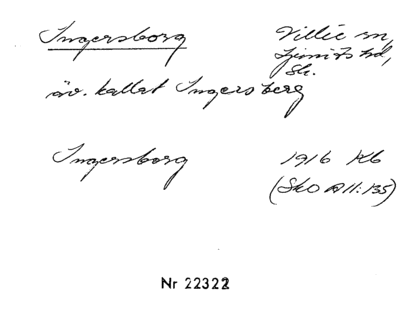 Ingersborg Villie sn,
Ljunits hd,
Sk.
äv. kallat Ingersberg
Ingersborg 1916 Kb
(SkO A11:135)
Nr 22322